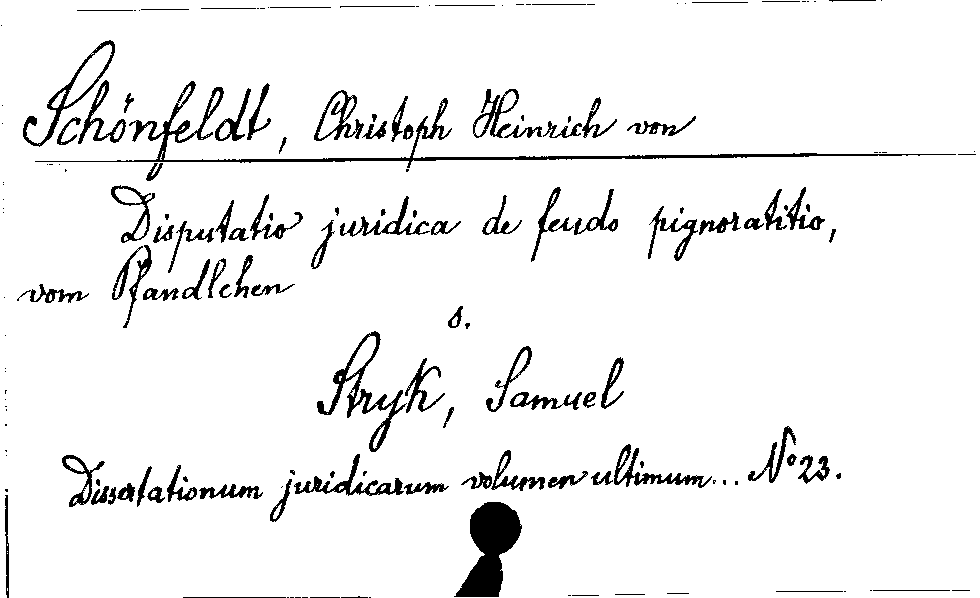 Schönfeldt, Christoph Heinrich von
Disputatio juridica de feudo pignoratitio,
vom Pfandlehen
s.
Stryk, Samuel
Dissertationum juridicarum volumen ultimum... No 23.